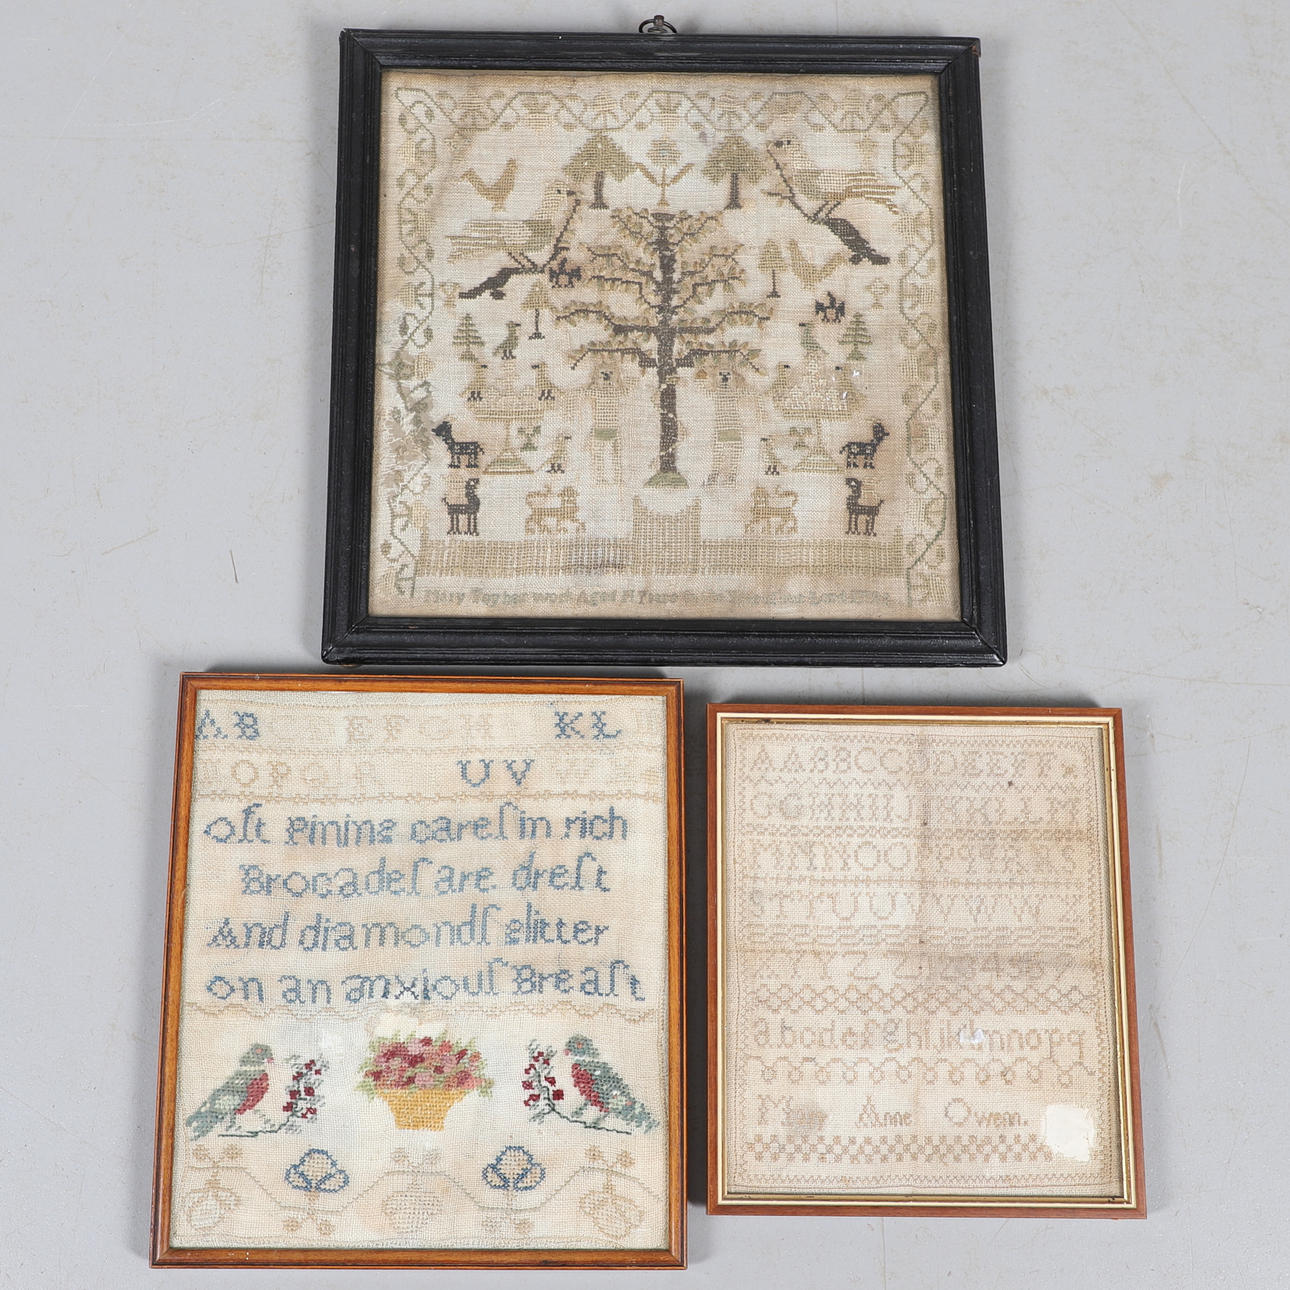 Mary her work Aged Years
A B E F G H K L
O P Q R U V W
oſt pining careſ in rich
Brocadeſ are dreſt
And diamondſ glitter
on an anxiouſ Breaſt
A A B B C C D D E E F F
G G H H I I J K K L L M
M N N O O P P Q R R S
S T T U U V V W W X
X Y Y Z Z 1 2 3 4 5 6 7
a b c d e f g h i j k m n o p q
Anne Owenn.